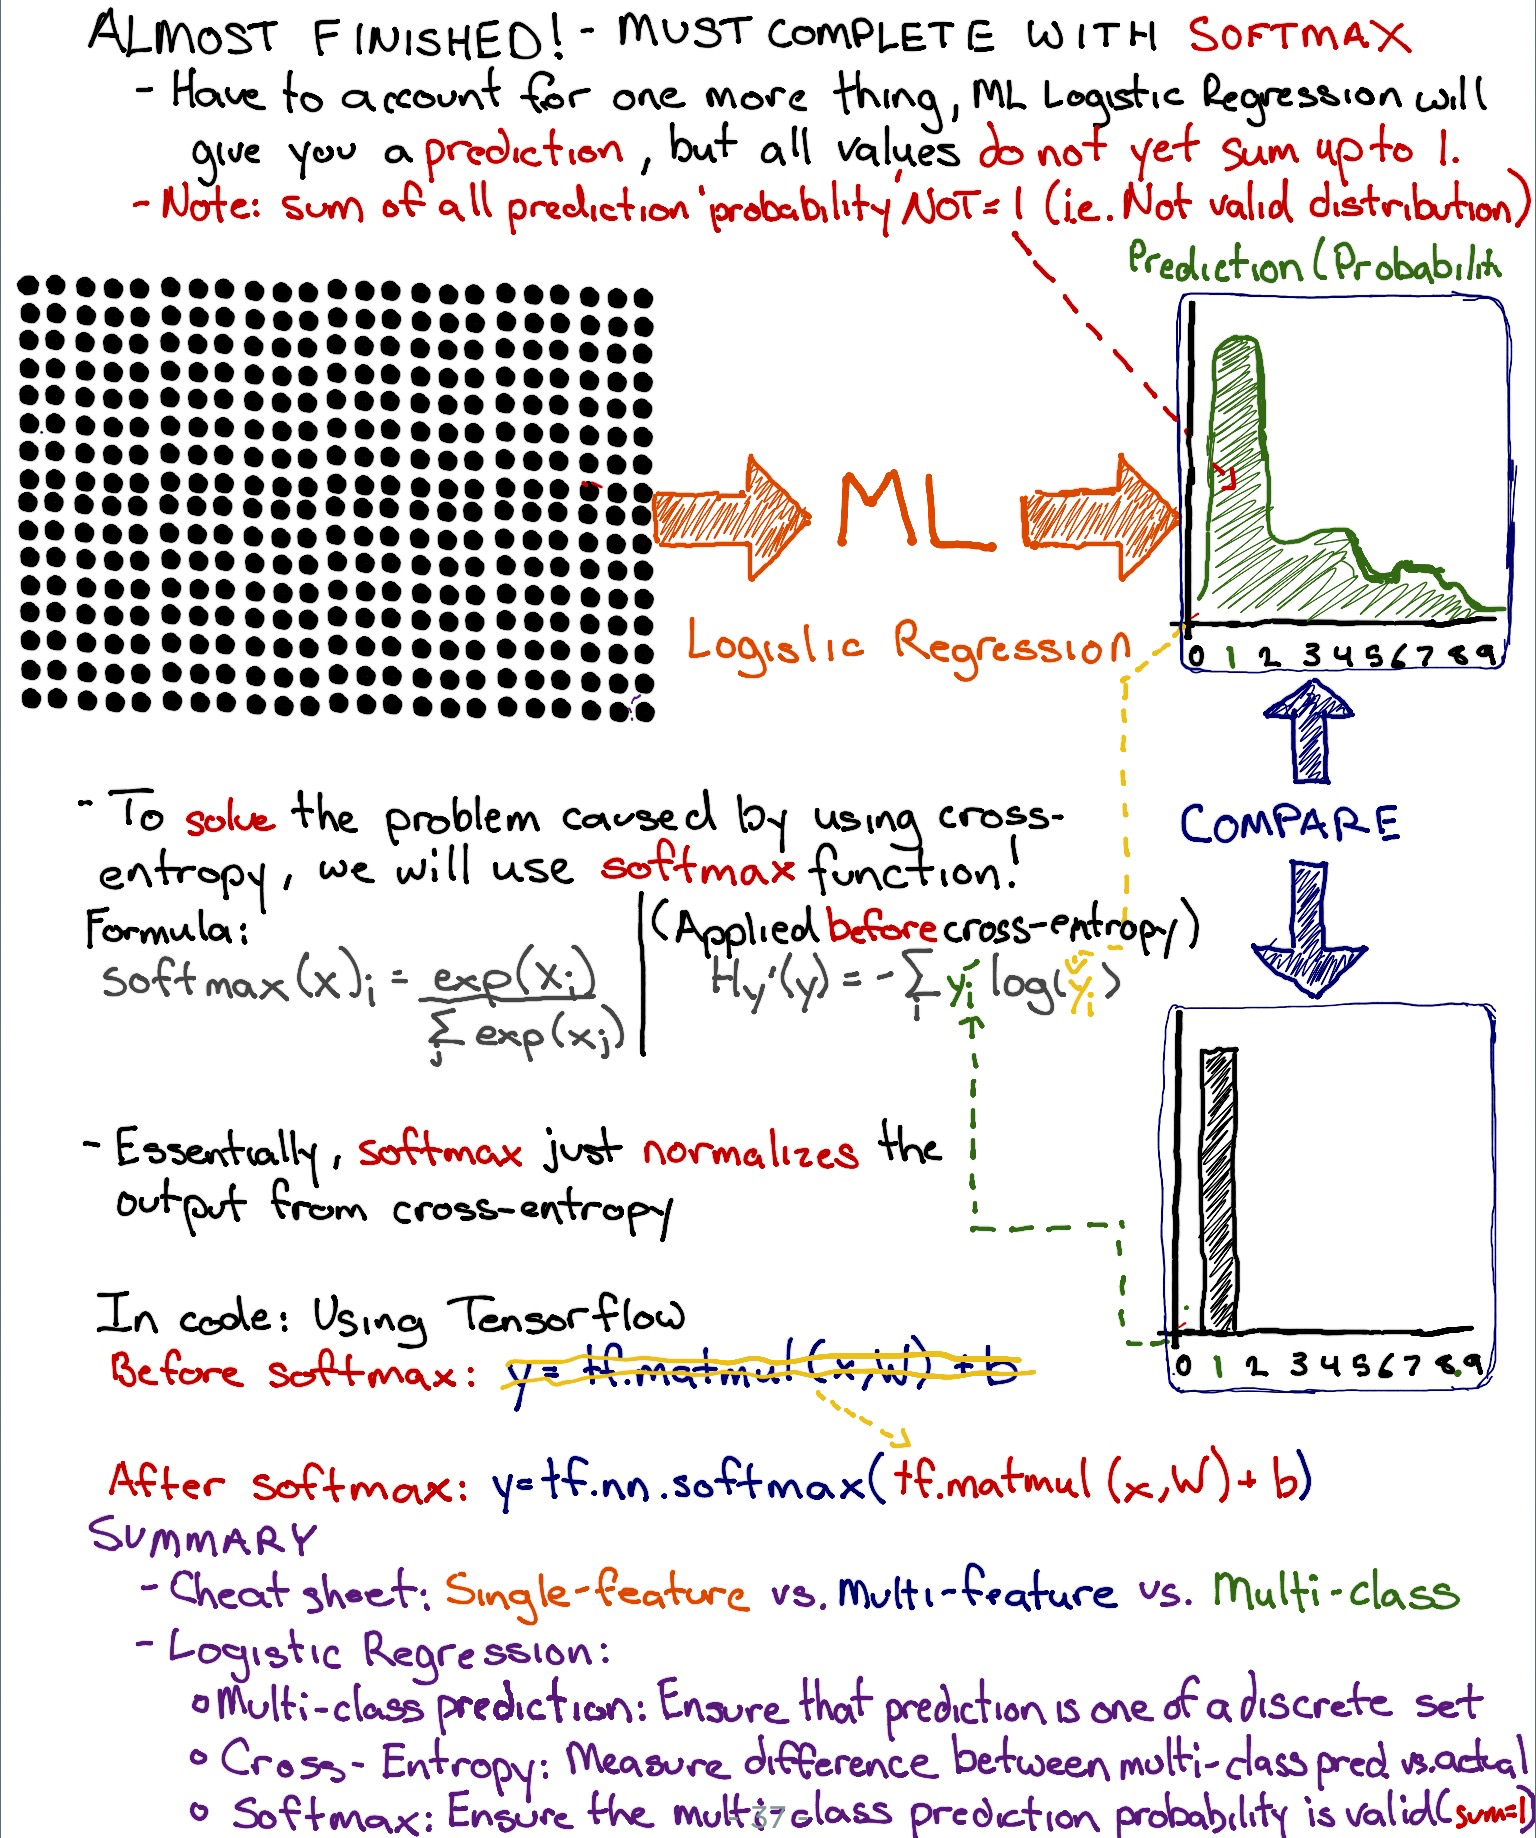 ALMOST FINISHED! - MUST COMPLETE WITH SOFTMAX
- Have to account for one more thing, ML Logistic Regression will
give you a prediction, but all values do not yet sum up to 1.
- Note: sum of all prediction 'probability' NOT= 1 (i.e. Not valid distribution)
Prediction (Probabilit
ML
Logistic Regression
0 1 2 3 4 5 6 7 8 9
- To solve the problem caused by using cross-
entropy, we will use softmax function!
COMPARE
Formula:
(Applied before cross-entropy)
softmax(x)i = exp(xi) / Σj exp(xj)
Hy'(y) = - Σi yi' log(yi)
- Essentially, softmax just normalizes the
output from cross-entropy
In code: Using Tensorflow
Before softmax: y = tf.matmul(x,W) + b
0 1 2 3 4 5 6 7 8 9
After softmax: y=tf.nn.softmax(tf.matmul(x,W)+b)
SUMMARY
- Cheat sheet: Single-feature vs. Multi-feature vs. Multi-class
- Logistic Regression:
o Multi-class prediction: Ensure that prediction is one of a discrete set
o Cross-Entropy: Measure difference between multi-class pred vs. actual
o Softmax: Ensure the multi-class prediction probability is valid (sum=1)
37